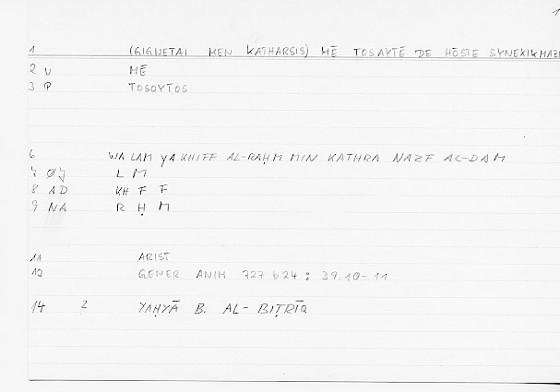 1 (GIGNETAI MEN KATHARSIS) MĒ TOSAYTĒ DE HŌSTE SYNEXIKMAZ
2 U MĒ
3 P TOSOYTOS
6 WA LAM YAKHIFF AL-RAḤM MIN KATHRA NAZF AL-DAM
7 ØJ L M
8 AD KH F F
9 NA R Ḥ M
11 ARIST
12 GENER ANIM 727 b24 : 39.10-11
14 2 YAḤYĀ B. AL-BIṬRĪQ